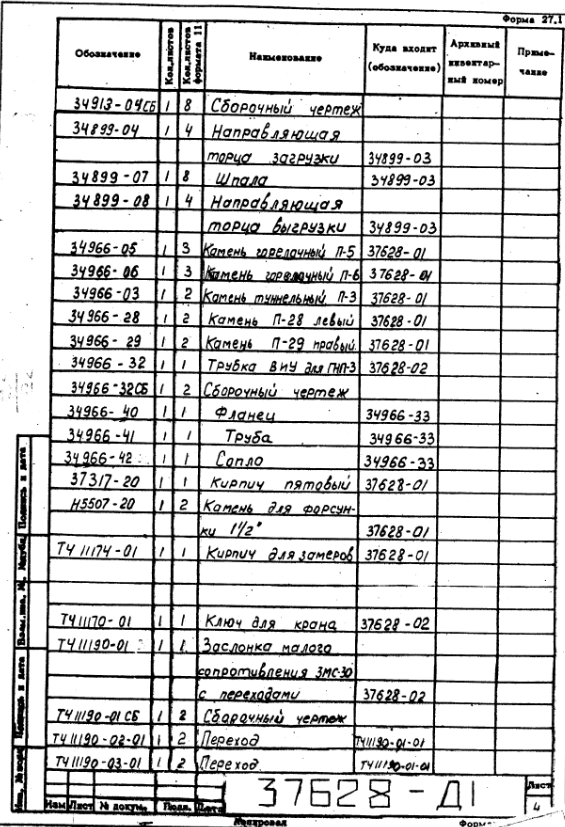 Форма 27.1
Обозначение Кол.листов Кол.листов формата 11 Наименование Куда входит (обозначение) Архивный инвентар-ный номер Приме-чание
34913-04СБ 1 8 Сборочный чертеж
34899-04 1 4 Направляющая
торца загрузки 34899-03
34899-07 1 8 Шпала 34899-03
34899-08 1 4 Направляющая
торца выгрузки 34899-03
34966-05 1 3 Камень горелочный П-5 37628-01
34966-06 1 3 Камень горелочный П-6 37628-01
34966-03 1 2 Камень туннельный П-3 37628-01
34966-28 1 2 Камень П-28 левый 37628-01
34966-29 1 2 Камень П-29 правый 37628-01
34966-32 1 1 Трубка ВиУ для ГНП-3 37628-02
34966-32СБ 1 2 Сборочный чертеж
34966-40 1 1 Фланец 34966-33
34966-41 1 1 Труба 34966-33
34966-42 1 1 Сопло 34966-33
37317-20 1 1 Кирпич пятовый 37628-01
Н5507-20 1 2 Камень для форсун-
ки 1 1/2" 37628-01
ТЧ 11174-01 1 1 Кирпич для замеров 37628-01
ТЧ11170-01 1 1 Ключ для крана 37628-02
ТЧ11190-01 1 1 Заслонка малого
сопротивления ЗМС-30
с переходами 37628-02
ТЧ11190-01 СБ 1 2 Сборочный чертеж
ТЧ11190-02-01 1 2 Переход ТЧ11190-01-01
ТЧ11190-03-01 1 2 Переход ТЧ11190-01-01
Подпись и дата
Взам.инв. №
Подпись и дата
Изм Лист № докум. Подп. Дата
37628-Д1
Лист
4
Копировал
Форма